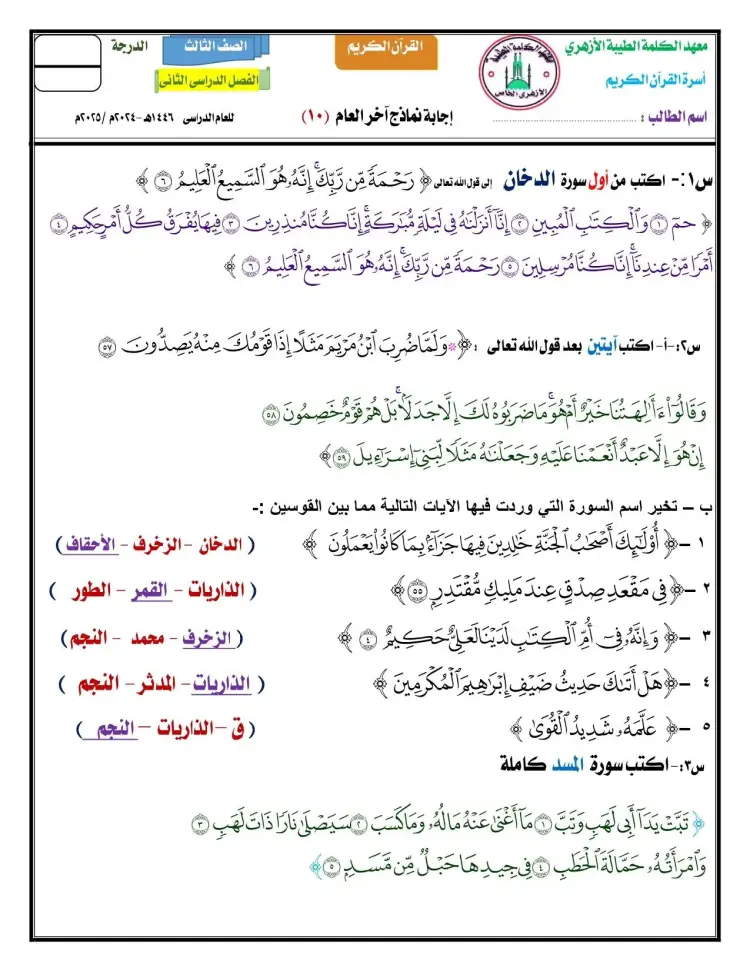 معهد الكلمة الطيبة الأزهري
القرآن الكريم
الصف الثالث
الدرجة
أسرة القرآن الكريم
الفصل الدراسى الثانى
اسم الطالب : ............................
إجابة نماذج آخر العام (١٠)
للعام الدراسى ١٤٤٦هـ -٢٠٢٤م /٢٠٢٥م
س١:- اكتب من أول سورة الدخان إلى قول الله تعالى ﴿ رَحْمَةً مِّن رَّبِّكَ ۚ إِنَّهُۥ هُوَ ٱلسَّمِيعُ ٱلْعَلِيمُ ٦ ﴾
﴿ حمٓ ١ وَٱلْكِتَٰبِ ٱلْمُبِينِ ٢ إِنَّآ أَنزَلْنَٰهُ فِى لَيْلَةٍ مُّبَٰرَكَةٍ ۚ إِنَّا كُنَّا مُنذِرِينَ ٣ فِيهَا يُفْرَقُ كُلُّ أَمْرٍ حَكِيمٍ ٤
أَمْرًا مِّنْ عِندِنَآ ۚ إِنَّا كُنَّا مُرْسِلِينَ ٥ رَحْمَةً مِّن رَّبِّكَ ۚ إِنَّهُۥ هُوَ ٱلسَّمِيعُ ٱلْعَلِيمُ ٦ ﴾
س٢:-أ- اكتب آيتين بعد قول الله تعالى :﴿ * وَلَمَّا ضُرِبَ ٱبْنُ مَرْيَمَ مَثَلًا إِذَا قَوْمُكَ مِنْهُ يَصِدُّونَ ٥٧
وَقَالُوٓا۟ ءَأَٰلِهَتُنَا خَيْرٌ أَمْ هُوَ ۚ مَا ضَرَبُوهُ لَكَ إِلَّا جَدَلًۢا ۚ بَلْ هُمْ قَوْمٌ خَصِمُونَ ٥٨
إِنْ هُوَ إِلَّا عَبْدٌ أَنْعَمْنَا عَلَيْهِ وَجَعَلْنَٰهُ مَثَلًا لِّبَنِىٓ إِسْرَٰٓءِيلَ ٥٩ ﴾
ب – تخير اسم السورة التي وردت فيها الآيات التالية مما بين القوسين :-
١ –﴿ أُو۟لَٰٓئِكَ أَصْحَٰبُ ٱلْجَنَّةِ خَٰلِدِينَ فِيهَا جَزَآءًۢ بِمَا كَانُوا۟ يَعْمَلُونَ ﴾ ( الدخان – الزخرف – الأحقاف )
٢ –﴿ فِى مَقْعَدِ صِدْقٍ عِندَ مَلِيكٍ مُّقْتَدِرٍۭ ٥٥ ﴾ ( الذاريات – القمر – الطور )
٣ –﴿ وَإِنَّهُۥ فِىٓ أُمِّ ٱلْكِتَٰبِ لَدَيْنَا لَعَلِىٌّ حَكِيمٌ ٤ ﴾ ( الزخرف – محمد – النجم )
٤ –﴿ هَلْ أَتَىٰكَ حَدِيثُ ضَيْفِ إِبْرَٰهِيمَ ٱلْمُكْرَمِينَ ﴾ ( الذاريات – المدثر – النجم )
٥ –﴿ عَلَّمَهُۥ شَدِيدُ ٱلْقُوَىٰ ﴾ ( ق – الذاريات – النجم )
س٣:- اكتب سورة المسد كاملة
﴿ تَبَّتْ يَدَآ أَبِى لَهَبٍ وَتَبَّ ١ مَآ أَغْنَىٰ عَنْهُ مَالُهُۥ وَمَا كَسَبَ ٢ سَيَصْلَىٰ نَارًا ذَاتَ لَهَبٍ ٣
وَٱمْرَأَتُهُۥ حَمَّالَةَ ٱلْحَطَبِ ٤ فِى جِيدِهَا حَبْلٌ مِّن مَّسَدٍۭ ٥ ﴾